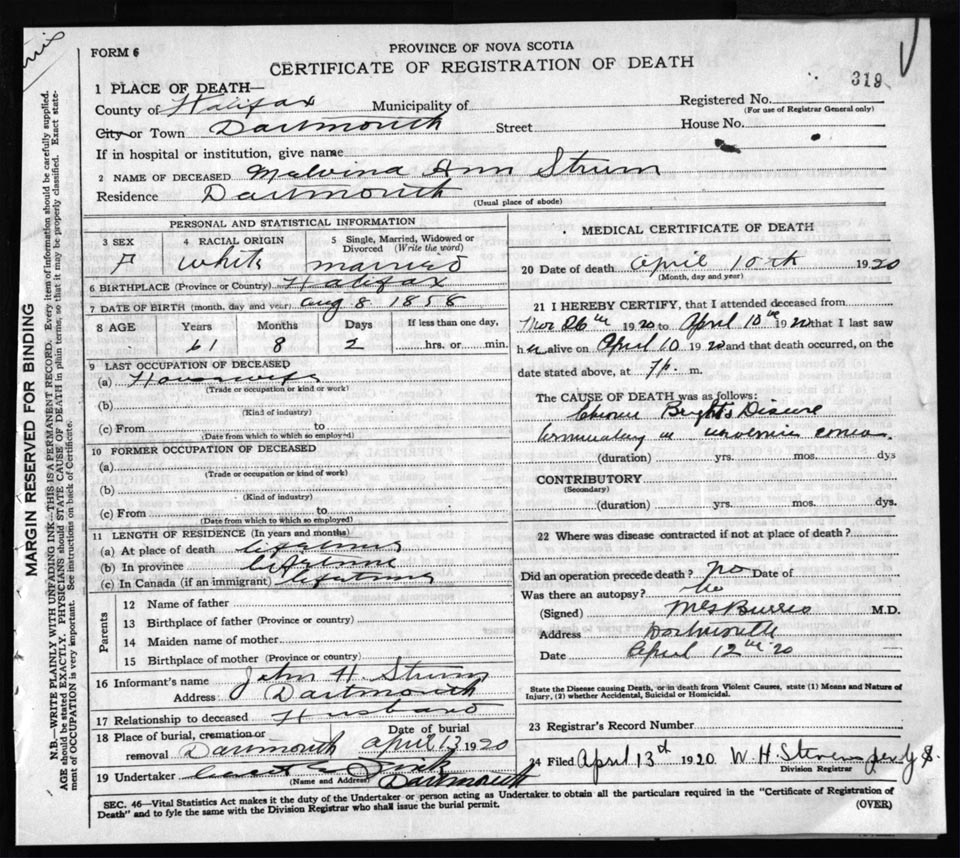 FORM 6
PROVINCE OF NOVA SCOTIA
CERTIFICATE OF REGISTRATION OF DEATH
319
1 PLACE OF DEATH—
County of Halifax Municipality of Registered No.
(For use of Registrar General only)
City or Town Dartmouth Street House No.
If in hospital or institution, give name
2 NAME OF DECEASED Melvina Ann Strum
Residence Dartmouth
(Usual place of abode)
PERSONAL AND STATISTICAL INFORMATION
3 SEX 4 RACIAL ORIGIN 5 Single, Married, Widowed or Divorced (Write the word)
F White married
6 BIRTHPLACE (Province or Country) Halifax
7 DATE OF BIRTH (month, day and year) Aug 8 1858
8 AGE Years Months Days If less than one day,
61 8 2 hrs. or min.
9 LAST OCCUPATION OF DECEASED
(a) Housewife
(Trade or occupation or kind or work)
(b)
(Kind of industry)
(c) From to
(Date from which to which so employed)
10 FORMER OCCUPATION OF DECEASED
(a)
(Trade or occupation or kind of work)
(b)
(Kind of industry)
(c) From to
(Date from which to which so employed)
11 LENGTH OF RESIDENCE (In years and months)
(a) At place of death lifetime
(b) In province lifetime
(c) In Canada (if an immigrant) lifetime
Parents
12 Name of father
13 Birthplace of father (Province or country)
14 Maiden name of mother
15 Birthplace of mother (Province or country)
16 Informant's name John H. Strum
Address Dartmouth
17 Relationship to deceased Husband
18 Place of burial, cremation or removal Dartmouth Date of burial April 13 1920
19 Undertaker
(Name and Address) Dartmouth
MEDICAL CERTIFICATE OF DEATH
20 Date of death April 10th 1920
(Month, day and year)
21 I HEREBY CERTIFY, that I attended deceased from
26th 1920 to April 10th 1920 that I last saw
her alive on April 10 1920 and that death occurred, on the
date stated above, at 7p. m.
The CAUSE OF DEATH was as follows:
Chronic Bright's Disease
terminating in uraemic coma.
(duration) yrs. mos. dys
CONTRIBUTORY
(Secondary)
(duration) yrs. mos. dys.
22 Where was disease contracted if not at place of death?
Did an operation precede death? no Date of
Was there an autopsy? no
(Signed) M.D.
Address Dartmouth
Date April 12th 20
State the Disease causing Death, or in death from Violent Causes, state (1) Means and Nature of Injury, (2) whether Accidental, Suicidal or Homicidal.
23 Registrar's Record Number
24 Filed April 13th 1920 W. H.
Division Registrar
SEC. 46—Vital Statistics Act makes it the duty of the Undertaker or person acting as Undertaker to obtain all the particulars required in the "Certificate of Registration of
Death" and to fyle the same with the Division Registrar who shall issue the burial permit. (OVER)
MARGIN RESERVED FOR BINDING
N.B.—WRITE PLAINLY WITH UNFADING INK—THIS IS A PERMANENT RECORD. Every item of information should be carefully supplied.
AGE should be stated EXACTLY. PHYSICIANS should STATE CAUSE OF DEATH in plain terms, so that it may be properly classified. Exact statement of OCCUPATION is very important. See instructions on back of Certificate.